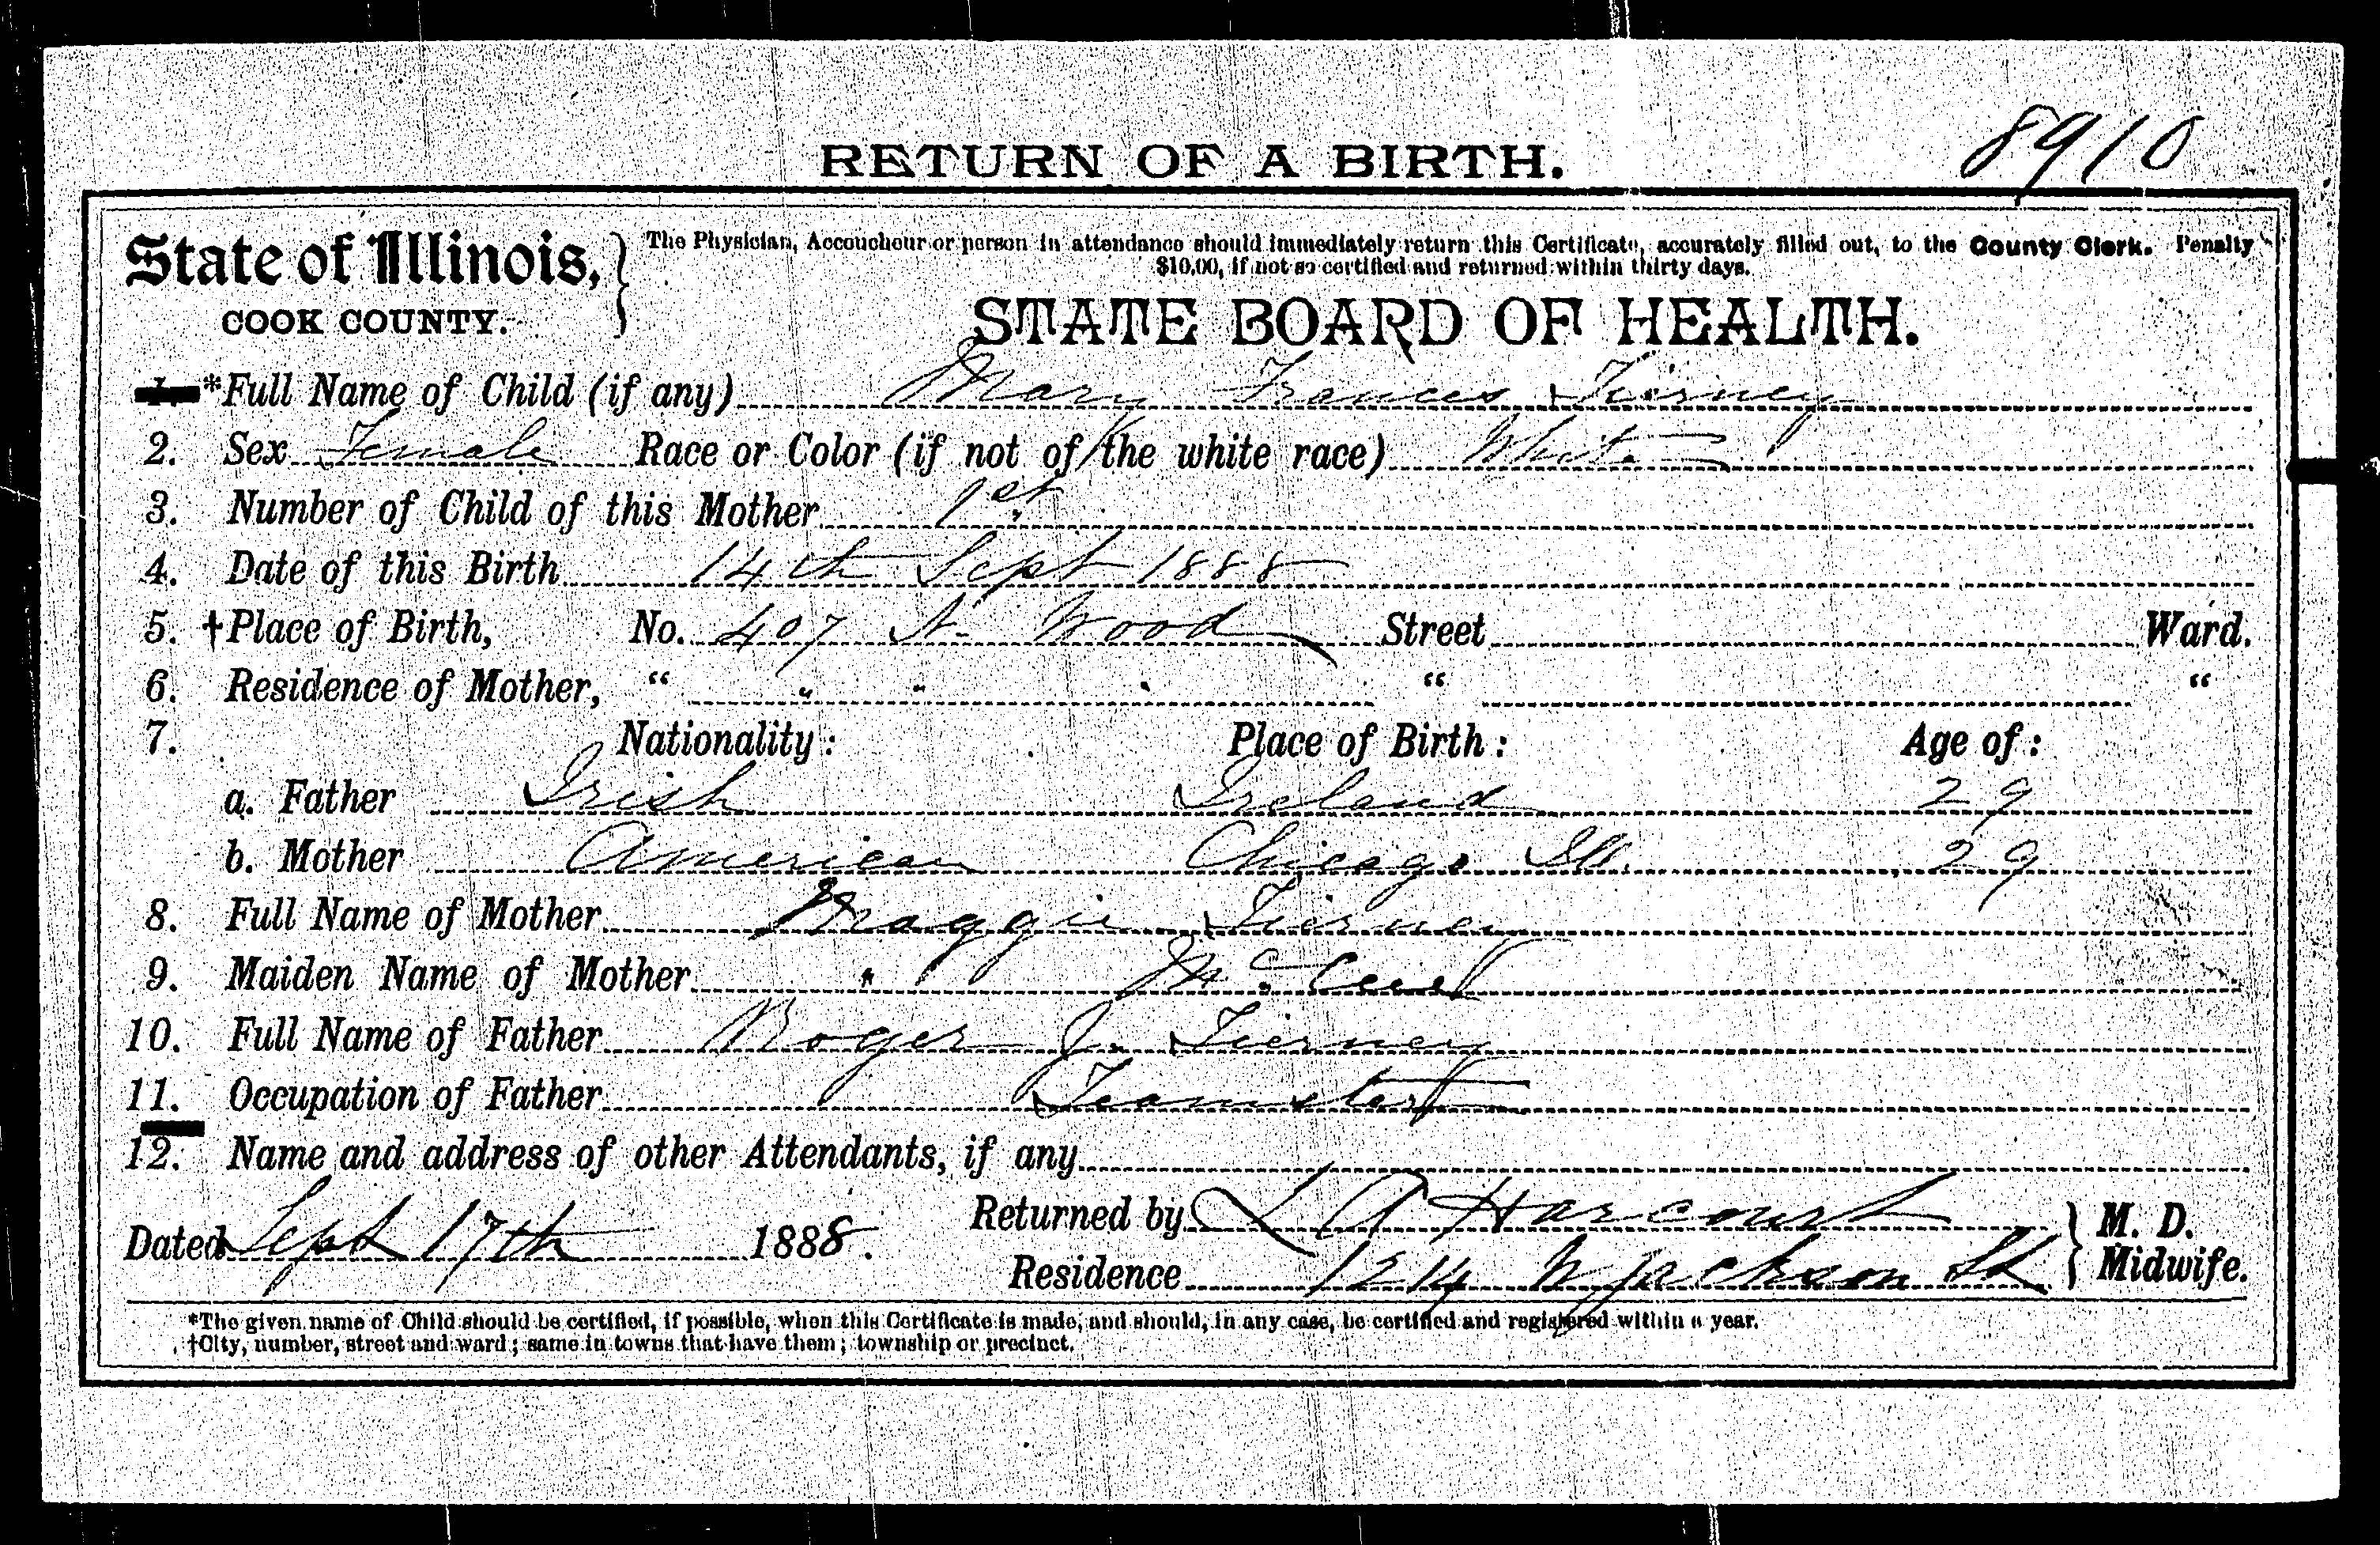 8910
RETURN OF A BIRTH.
State of Illinois, COOK COUNTY.
The Physician, Accoucheur or person in attendance should immediately return this Certificate, accurately filled out, to the County Clerk. Penalty
$10.00, if not so certified and returned within thirty days.
STATE BOARD OF HEALTH.
1. *Full Name of Child (if any) Mary Frances Tierney
2. Sex Female Race or Color (if not of the white race) White
3. Number of Child of this Mother 1st
4. Date of this Birth 14th Sept 1888
5. †Place of Birth, No. 407 N. Wood Street Ward.
6. Residence of Mother, " " " " " "
7. Nationality: Place of Birth: Age of:
a. Father Irish Ireland 29
b. Mother American Chicago Ill. 29
8. Full Name of Mother Maggie Tierney
9. Maiden Name of Mother "
10. Full Name of Father Roger J. Tierney
11. Occupation of Father Teamster
12. Name and address of other Attendants, if any
Dated Sept 17th 1888. Returned by L A Harcourt M. D.
Residence 1214 W Jackson St Midwife.
*The given name of Child should be certified, if possible, when this Certificate is made, and should, in any case, be certified and registered within a year.
†City, number, street and ward; same in towns that have them; township or precinct.